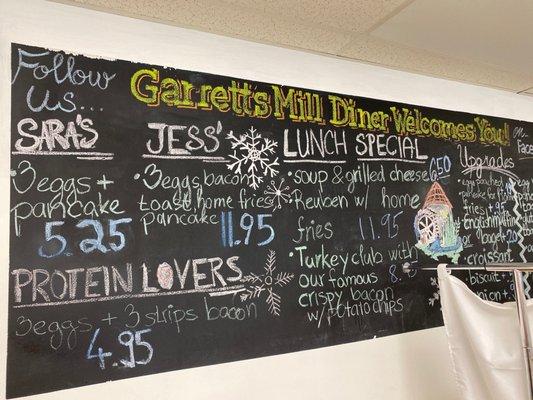 Follow us...
Garretts Mill Diner Welcomes You!
on
SARA'S
3eggs +
pancake
5.25
JESS'
3eggs, bacon
toast home fries
pancake 11.95
PROTEIN LOVERS
3eggs + 3 strips bacon
4.95
LUNCH SPECIAL
soup & grilled cheese 6.50
Reuben w/ home
fries 11.95
Turkey club with
our famous
crispy bacon
w/ potato chips
Upgrades
egg poached
pancake for
fries
english muffin
or bagel
croissant
biscuit